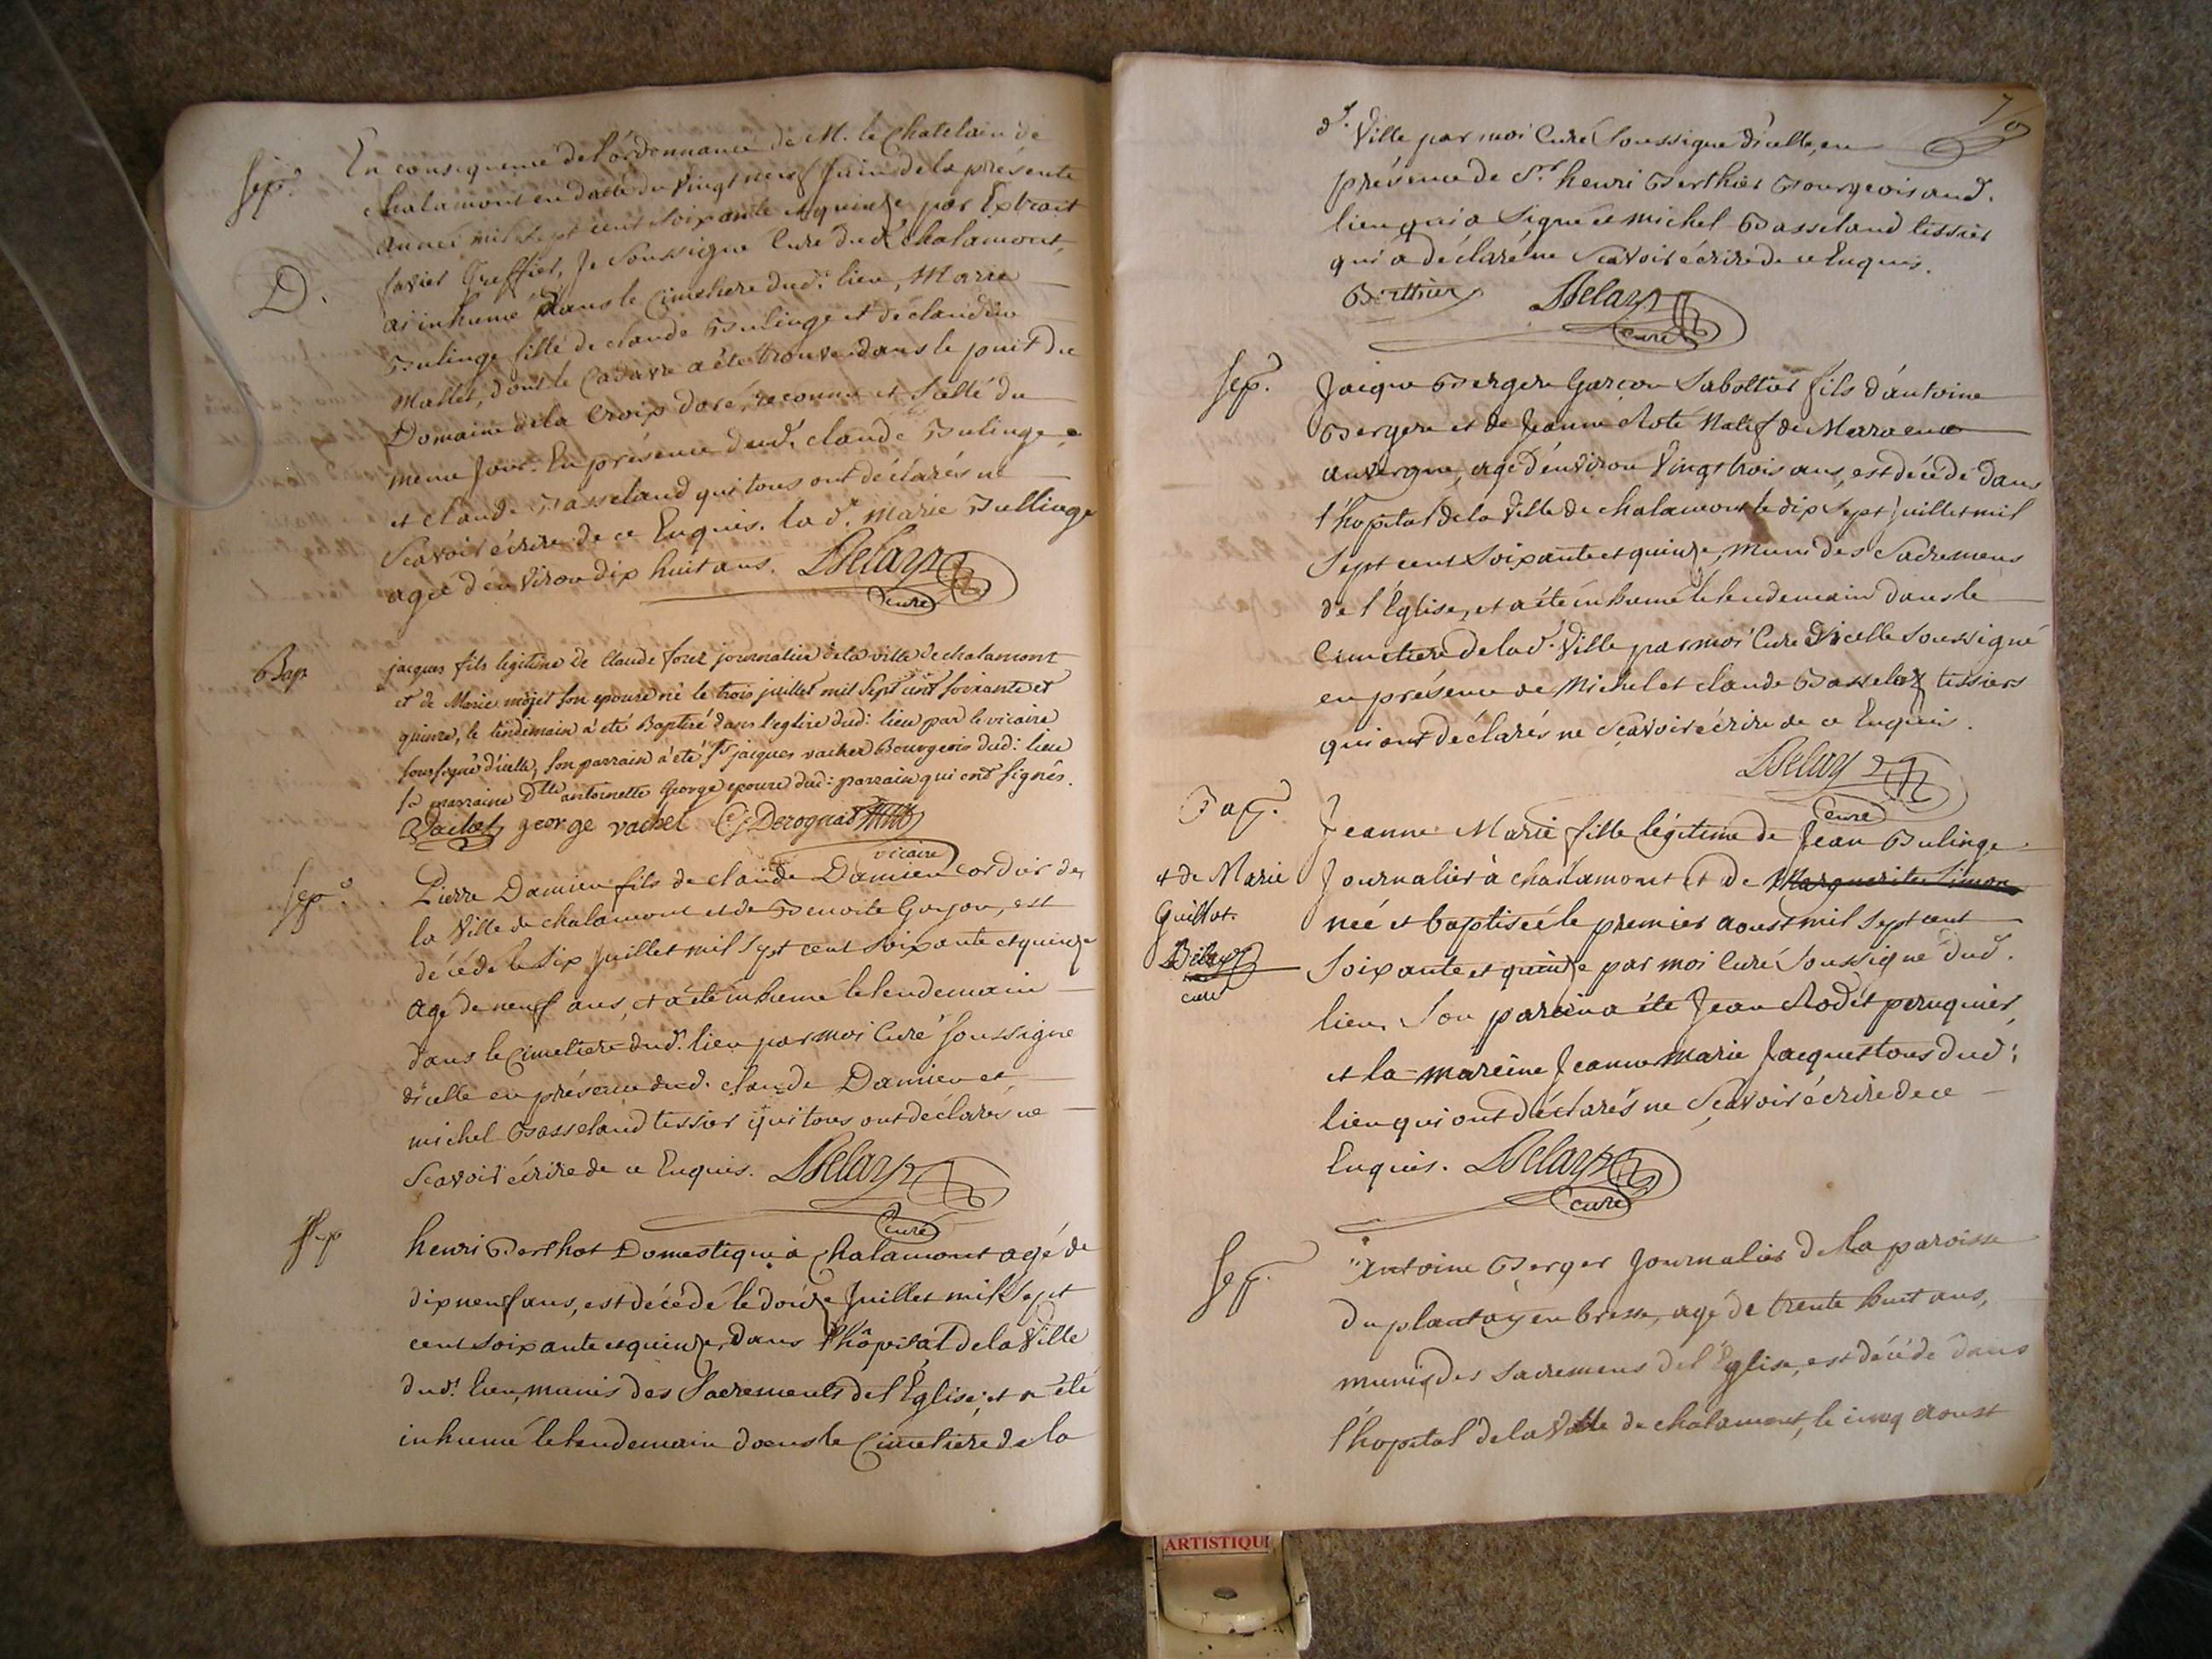 Sep.
En consequence de l'ordonnance de M. le Chatelain de
chalamont en datte du vingt neuf Juin de la présente
année mil sept cent soixante et quinze par Extrait
favier Greffier, Je soussigné Curé dud. chalamont,
D.
ai inhumé dans le Cimetiere dud. lieu, Marie
Bulinge fille de claude Bulinge et de claudine
Mallet, dont le Cadavre a été trouvé dans le puit du
Domaine de la Croix, reconnu et scellé du
même Jour. En présence dud. claude Bulinge
et claude Basseland qui tous ont déclarés ne
Scavoir écrire de ce Enquis. la d. Marie Bullinge
agée d'environ dix huit ans. Delaye
curé
Bap
jacques fils legitime de Claude forez journalier de la ville de chalamont
et de Marie mojet son epouse né le trois juillet mil sept cent soixante et
quinze, le lendemain a été Baptisé dans l'eglise dud: lieu par le vicaire
soussigné d'icelle, son parrain a été sr jacques vachez Bourgeois dud: lieu
sa marraine Dlle antoinette George epouse dud: parrain qui ont signés.
Vachez george vachel Derognat
vicaire
Sep.
Pierre Damien fils de claude Damien cordier de
la Ville de chalamont et de Benoite Goyon, est
décédé le six Juillet mil sept cent soixante et quinze
agé de neuf ans, et a été inhumé le lendemain
dans le Cimetiere dud. lieu par moi Curé soussigné
d'icelle en présence dud. claude Damien et
michel Basseland tessier qui tous ont déclarés ne
Scavoir écrire de ce Enquis. Delaye
curé
Sep
henri Berthot Domestique à chalamont agé de
dix neuf ans, est décédé le douze Juillet mil sept
cent soixante et quinze, dans l'hôpital de la Ville
dud. lieu, munis des Sacrements de l'Église, et a été
inhumé le lendemain dans le Cimetière de la
70
d. Ville par moi Curé Soussigné d'icelle, en
présence de Sr. henri Berthier Bourgeois aud.
lieu qui a signé et michel Basseland tessier
qui a déclaré ne Scavoir écrire de ce Enquis.
Berthier Delaye
curé
Sep.
Jacque Bergere Garçon Sabottier fils d'antoine
Bergere et de Jeanne Roté Natif de en
auvergne, agé d'environ vingt trois ans, est décédé dans
l'hopital de la Ville de chalamont le dix sept Juillet mil
sept cent soixante et quinze, muni des Sacremens
de l'Église, et a été inhumé le lendemain dans le
Cimetiere de la d. Ville par moi Curé d'icelle soussigné
en présence de Michel et claude Basseland tessiers
qui ont déclarés ne Scavoir écrire de ce Enquis.
Delaye
curé
Bap.
Jeanne Marie fille légitime de Jean Bulinge
Journalier à chalamont et de Marguerite Simon
+ de Marie
Guillot.
Delaye
curé
neé et baptisée le premier aoust mil sept cent
soixante et quinze par moi Curé Soussigné dud.
lieu. Son parein a été Jean Rodet peruquier,
et la mareine Jeanne Marie Jacquet tous dud:
lieu qui ont déclarés ne Scavoir écrire de ce
Enquis. Delaye
curé
Sep.
Antoine Berger Journalier de la paroisse
du plantay en bresse, agé de trente huit ans,
munis des Sacremens de l'Eglise, est décédé dans
l'hopital de la Ville de chalamont, le cinq aoust
ARTISTIQU